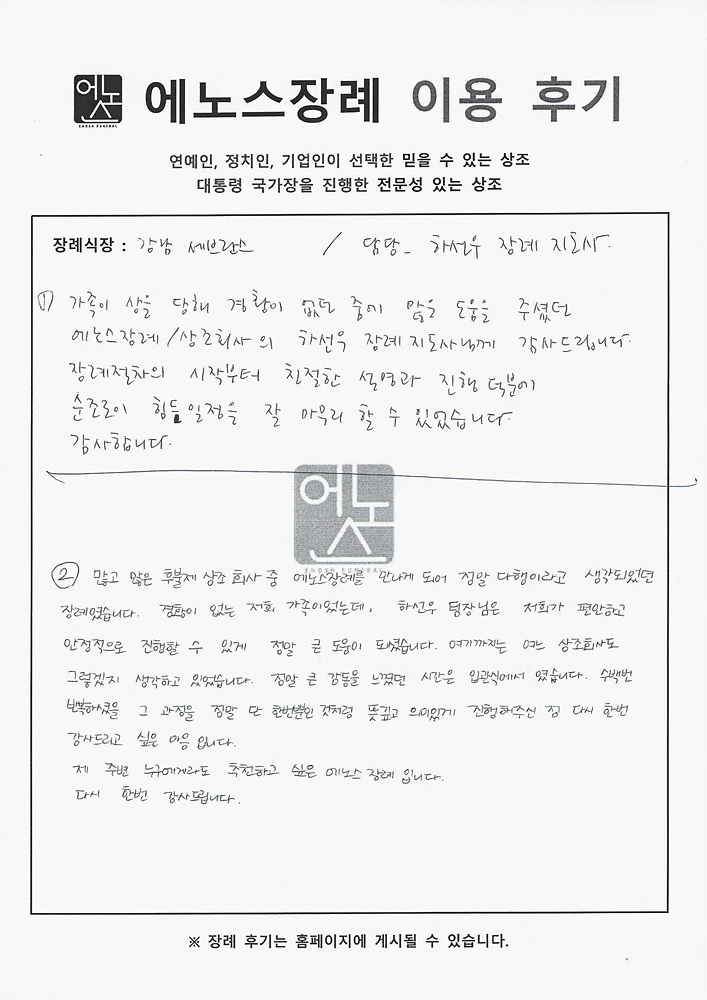 에노스
ENOSH FUNERAL
에노스장례 이용 후기
연예인, 정치인, 기업인이 선택한 믿을 수 있는 상조
대통령 국가장을 진행한 전문성 있는 상조
장례식장 : 강남 세브란스 / 담당_ 하선우 장례 지도사.
① 가족이 상을 당해 경황이 없던 중에 많은 도움을 주셨던
에노스장례/상조회사의 하선우 장례지도사님께 감사드립니다.
장례절차의 시작부터 친절한 설명과 진행 덕분에
순조로이 힘든 일정을 잘 마무리 할 수 있었습니다.
감사합니다.
에노스
ENOSH FUNERAL
② 많고 많은 후불제 상조 회사 중 에노스장례를 만나게 되어 정말 다행이라고 생각되었던
장례였습니다. 경황이 없는 저희 가족이었는데, 하선우 팀장님은 저희가 편안하고
안정적으로 진행할 수 있게 정말 큰 도움이 되셨습니다. 여기까지는 여느 상조회사도
그렇겠지 생각하고 있었습니다. 정말 큰 감동을 느꼈던 시간은 입관식에서 였습니다. 수백번
반복하셨을 그 과정을 정말 단 한번뿐인 것처럼 뜻깊고 의미있게 진행해주신 점 다시 한번
감사드리고 싶은 마음 입니다.
제 주변 누구에게라도 추천하고 싶은 에노스 장례 입니다.
다시 한번 감사드립니다.
※ 장례 후기는 홈페이지에 게시될 수 있습니다.